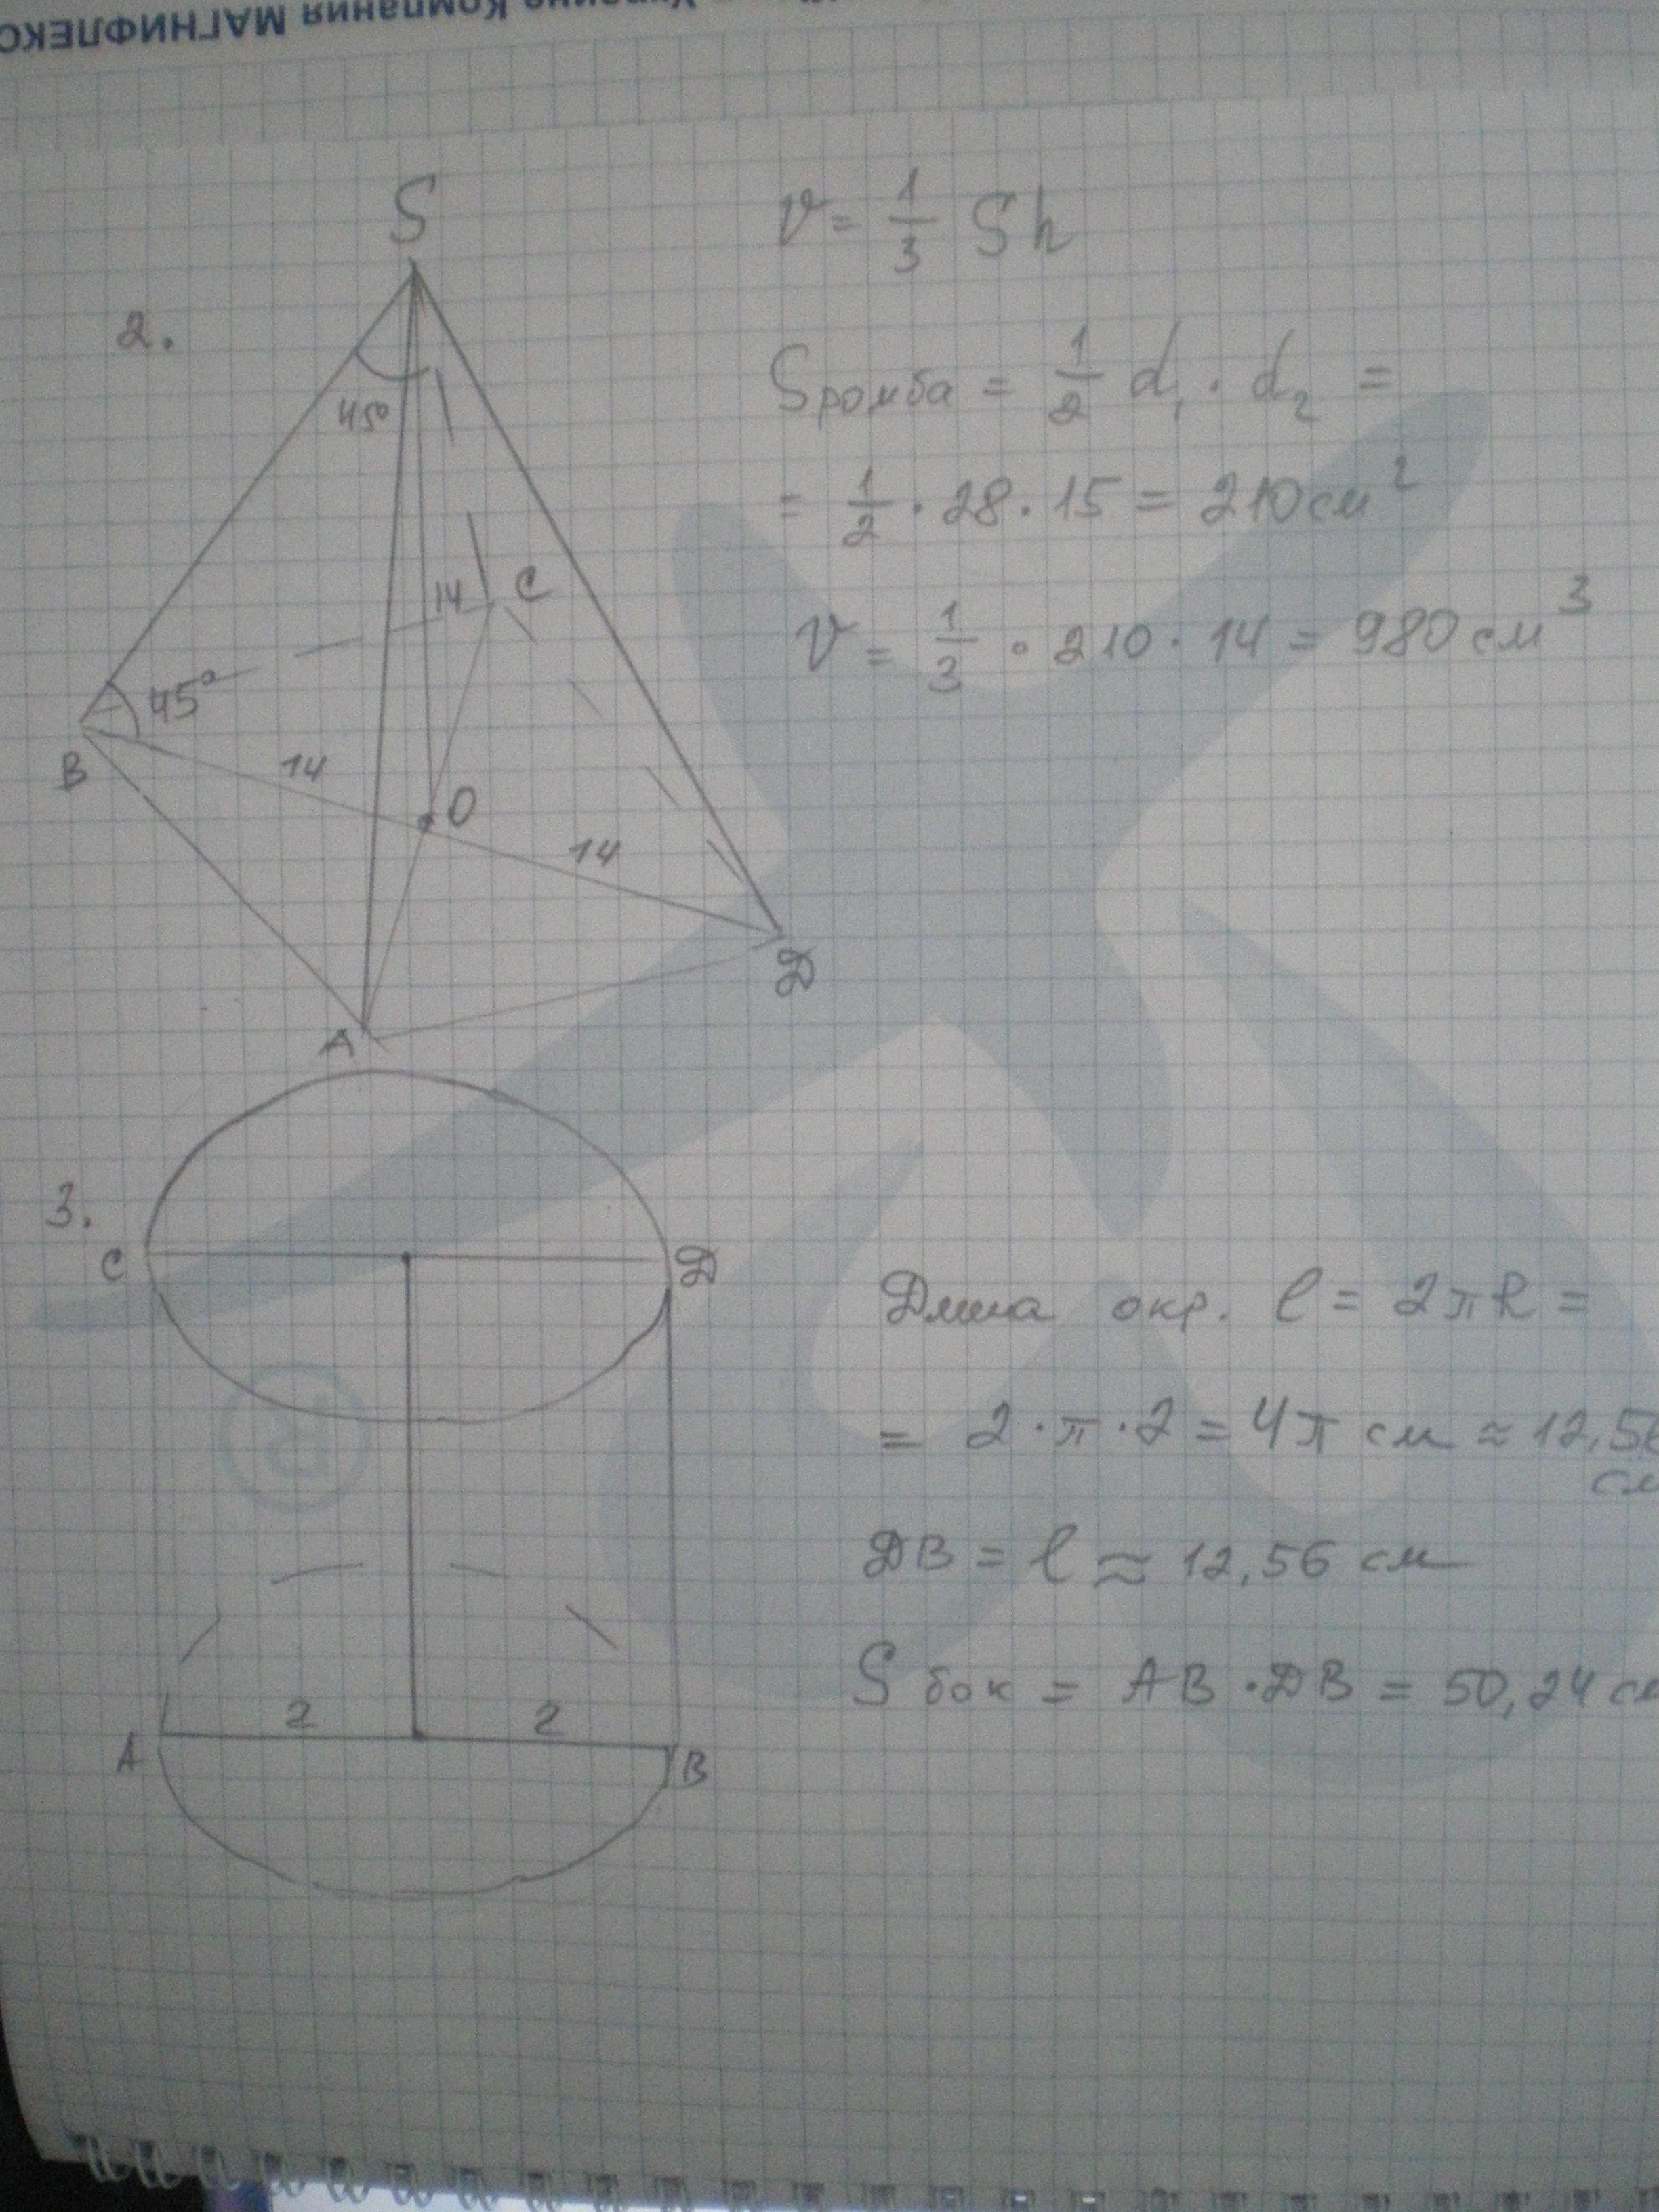 Украине Компания МАГНИФЛЕКС
S
2.
45°
14
C
45°
B
14
O
14
Д
A
V = 1/3 Sh
Sромба = 1/2 d₁ · d₂ =
= 1/2 · 28 · 15 = 210 см²
V = 1/3 · 210 · 14 = 980 см³
3.
C
Д
2
2
A
B
Длина окр. l = 2πR =
= 2 · π · 2 = 4π см ≈ 12,56
см
ДВ = l ≈ 12,56 см
S бок = АВ · ДВ = 50,24 см
®